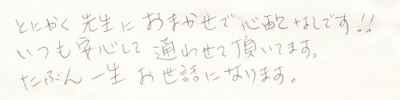 とにかく先生におまかせで心配なしです!!
いつも安心して通わせて頂いてます。
たぶん一生お世話になります。